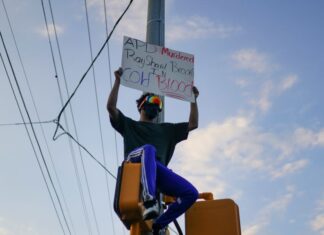 APD Murdered
Rayshard Brooks
IN
Cold Blood